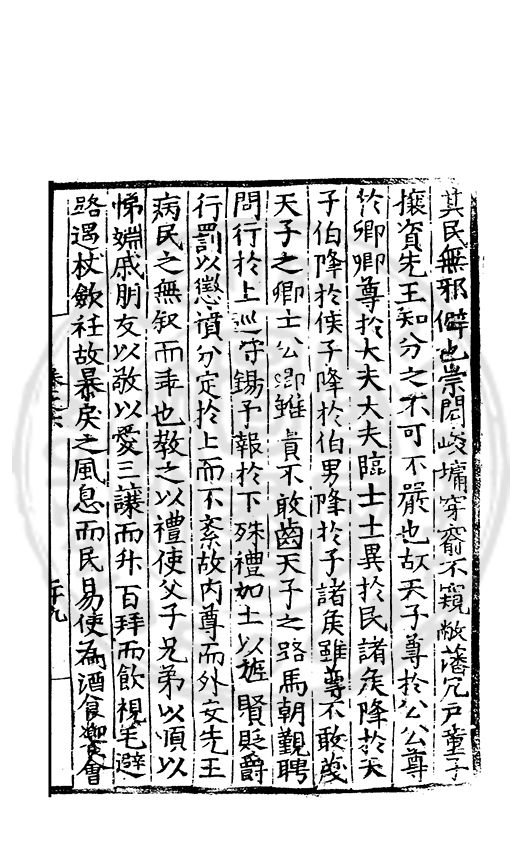 其民無邪僻也崇閎峻墉穿窬不窺敝藩冗戶童子
攘資先王知分之不可不嚴也故天子尊於公公尊
於卿卿尊於大夫大夫臨士士異於民諸侯降於天
子伯降於侯子降於伯男降於子諸侯雖尊不敢蔑
天子之卿士公卿雖貴不敢齒天子之路馬朝覲聘
問行於上巡守錫予報於下殊禮加土以旌賢貶爵
行罰以懲僨分定於上而不紊故內尊而外安先王
病民之無叙而乖也教之以禮使父子兄弟以順以
悌婣戚朋友以敬以愛三讓而升百拜而飲視毛避
路遇杖歛衽故暴戾之風息而民易使為酒食
會
二十九